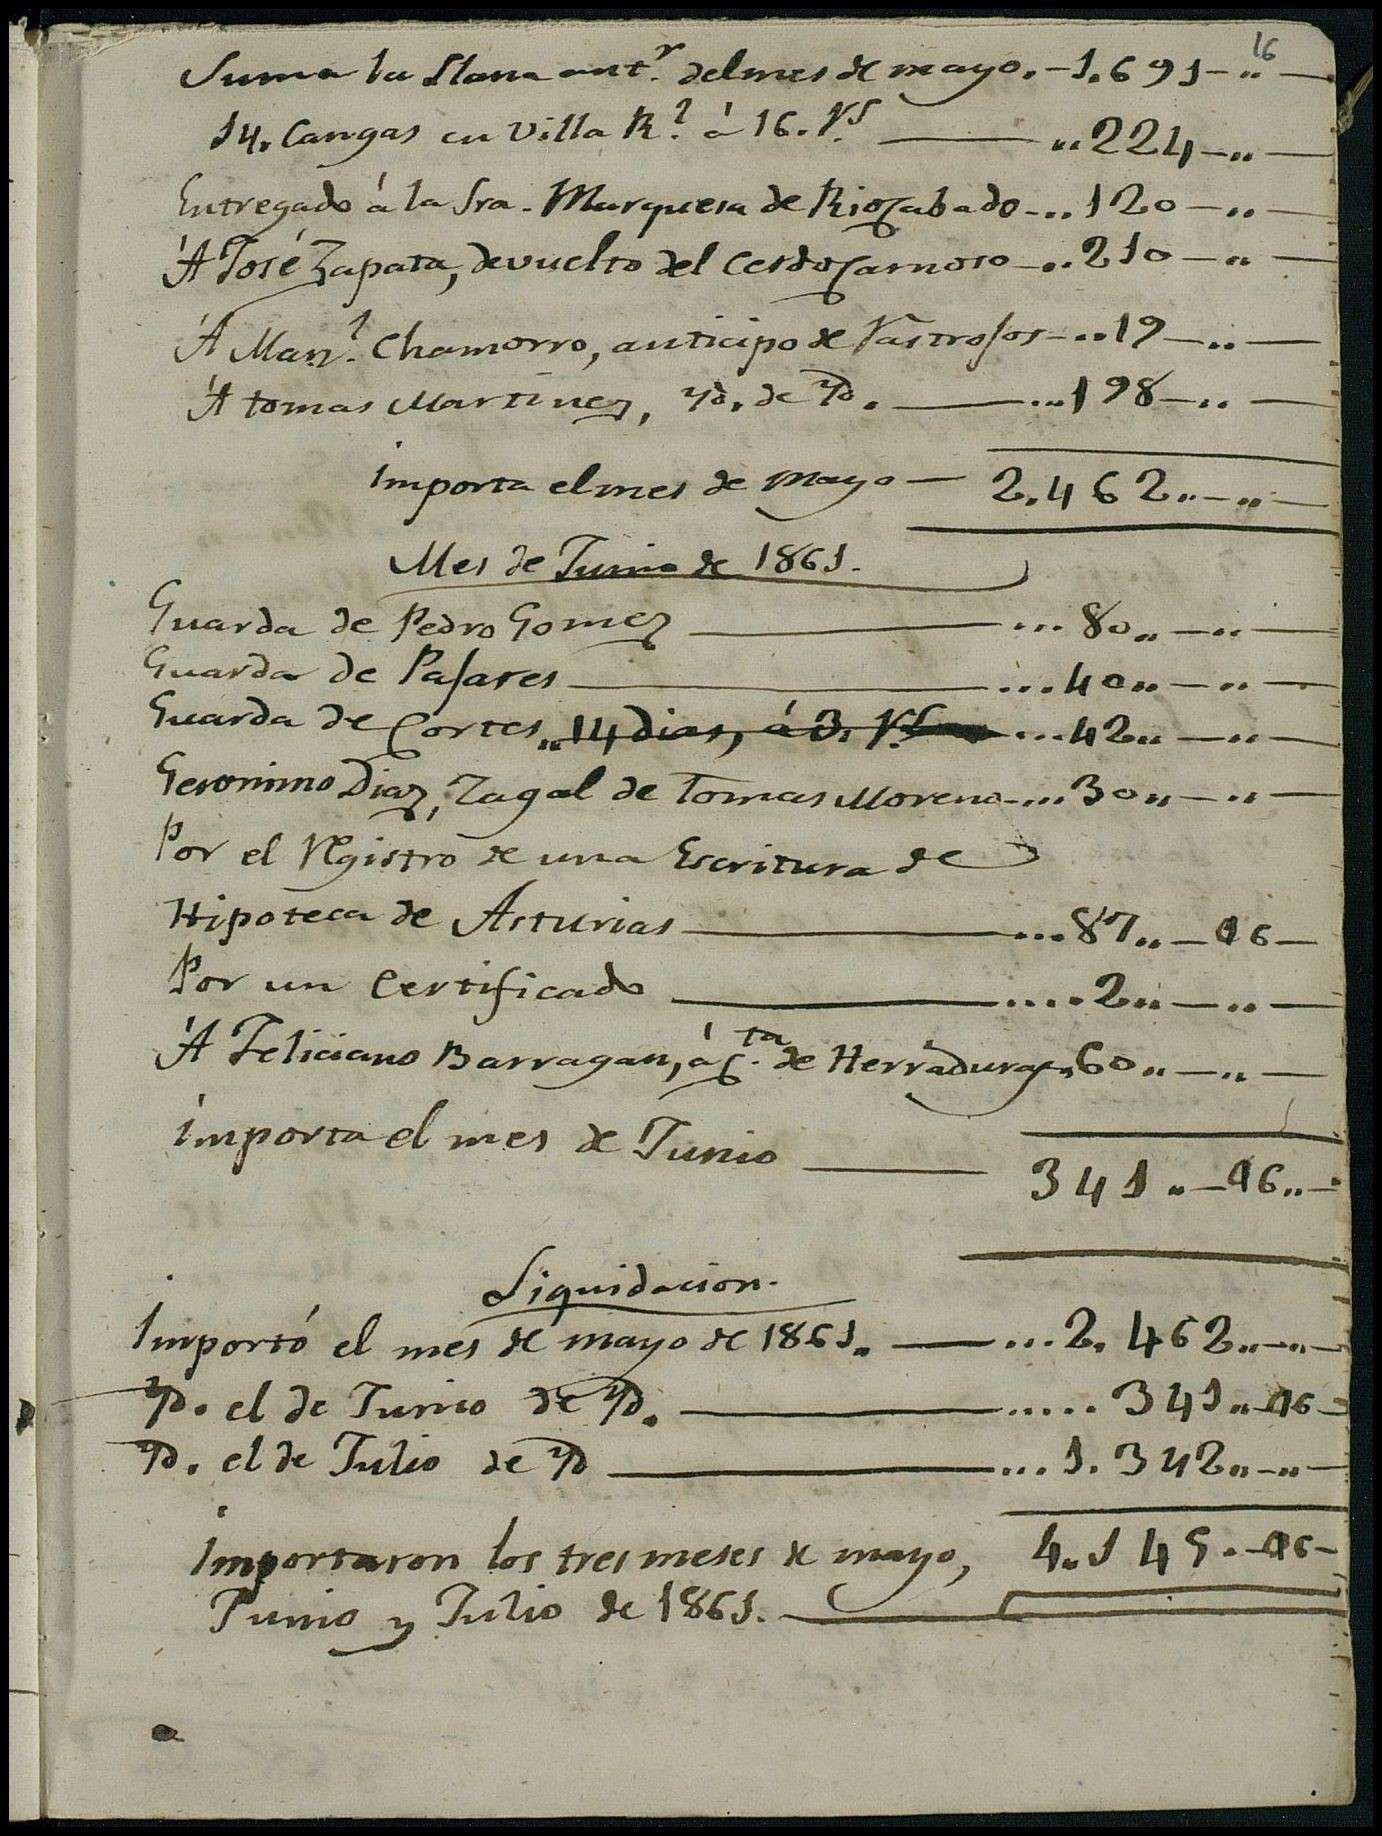 16
Suma la Llana ant.r del mes de mayo. 1.691 ,,
14. Cangas en Villa R.l á 16. rs ,, 224 ,,
Entregado á la Sra. Marquesa de Riocabado ... 120 ,,
Á José Zapata, devuelto del Cerdo Carnoso ... 210 ,,
Á Man.l Chamorro, anticipo de rastrojos ... 19 ,,
Á tomas Martinez, yd. de yd. ... 198 ,,
importa el mes de mayo 2.462 ,, ,,
Mes de Junio de 1861.
Guarda de Pedro Gomez ... 80 ,, ,,
Guarda de Pajares ... 40 ,, ,,
Guarda de Cortes ,, 14 dias, á 3. rs ... 42 ,, ,,
Geronimo Diaz, Zagal de Tomas Moreno ... 30 ,, ,,
Por el Registro de una Escritura de
Hipoteca de Asturias ... 87 ,, 16
Por un Certificado .... 2 ,, ,,
Á Feliciano Barragan, á c.ta de Herraduras ,, 60 ,, ,,
importa el mes de Junio 341 ,, 16 ,,
Liquidacion.
Importó el mes de mayo de 1861. ... 2.462 ,, ,,
yd. el de Junio de yd. ..... 341 ,, 16
yd. el de Julio de yd ... 1.342 ,, ,,
Importaron los tres meses de mayo, 4.145. 16
Junio y Julio de 1861.